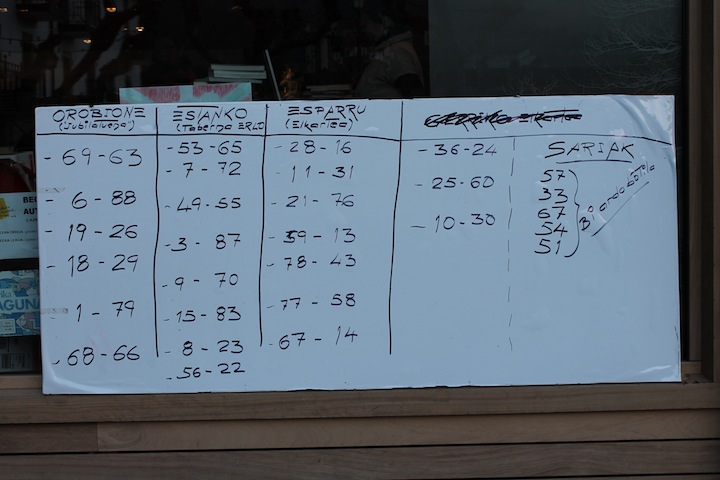 OROBIONE
- 69-63
- 6-88
- 19-26
- 18-29
- 1-79
- 68-66
ESIANKO
(Taberna
- 53-65
- 7-72
- 49-55
- 3-87
- 9-70
- 15-83
- 8-23
- 56-22
ESPARRU
(Elkartea)
- 28-16
- 11-31
- 21-76
- 59-13
- 78-43
- 77-58
- 67-14
- 36-24
- 25-60
- 10-30
SARIAK
57
33
67
54
51